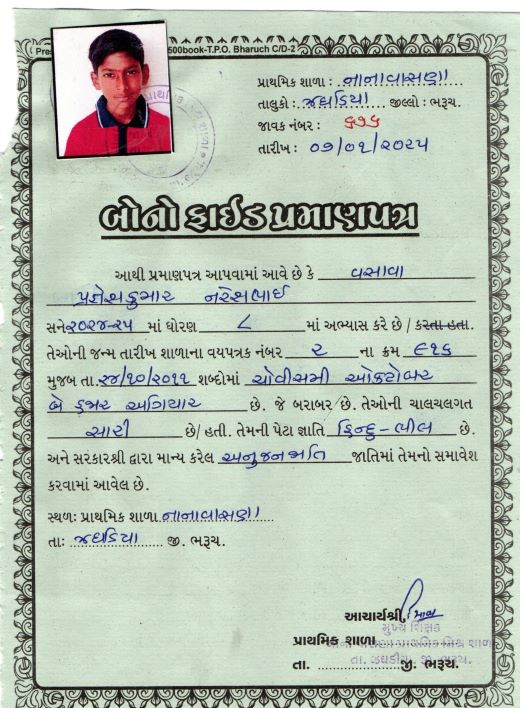 500book-T.P.O. Bharuch C/D-2
પ્રાથમિક શાળા : નાનાવાસણા
તાલુકો : ઝઘડિયા જીલ્લો : ભરૂચ.
જાવક નંબર : ૬૭૬
તારીખ : ૦૭/૦૧/૨૦૨૫
બોનો ફાઈડ પ્રમાણપત્ર
આથી પ્રમાણપત્ર આપવામાં આવે છે કે વસાવા
પ્રજ્ઞેશકુમાર નરેશભાઈ
સને ૨૦૨૪-૨૫ માં ધોરણ ૮ માં અભ્યાસ કરે છે / કરતા હતા.
તેઓની જન્મ તારીખ શાળાના વયપત્રક નંબર ૨ ના ક્રમ ૯૧૬
મુજબ તા. ૨૪/૧૦/૨૦૧૧ શબ્દોમાં ચોવીસમી ઓક્ટોબર
બે હજાર અગિયાર છે. જે બરાબર છે. તેઓની ચાલચલગત
સારી છે/ હતી. તેમની પેટા જ્ઞાતિ હિન્દુ-ભીલ છે.
અને સરકારશ્રી દ્વારા માન્ય કરેલ અનુજનજાતિ જાતિમાં તેમનો સમાવેશ
કરવામાં આવેલ છે.
સ્થળઃ પ્રાથમિક શાળા નાનાવાસણા
તાઃ ઝઘડિયા જી. ભરૂચ.
આચાર્યશ્રી
મુખ્ય શિક્ષક
પ્રાથમિક શાળા
તા. જી. ભરૂચ.